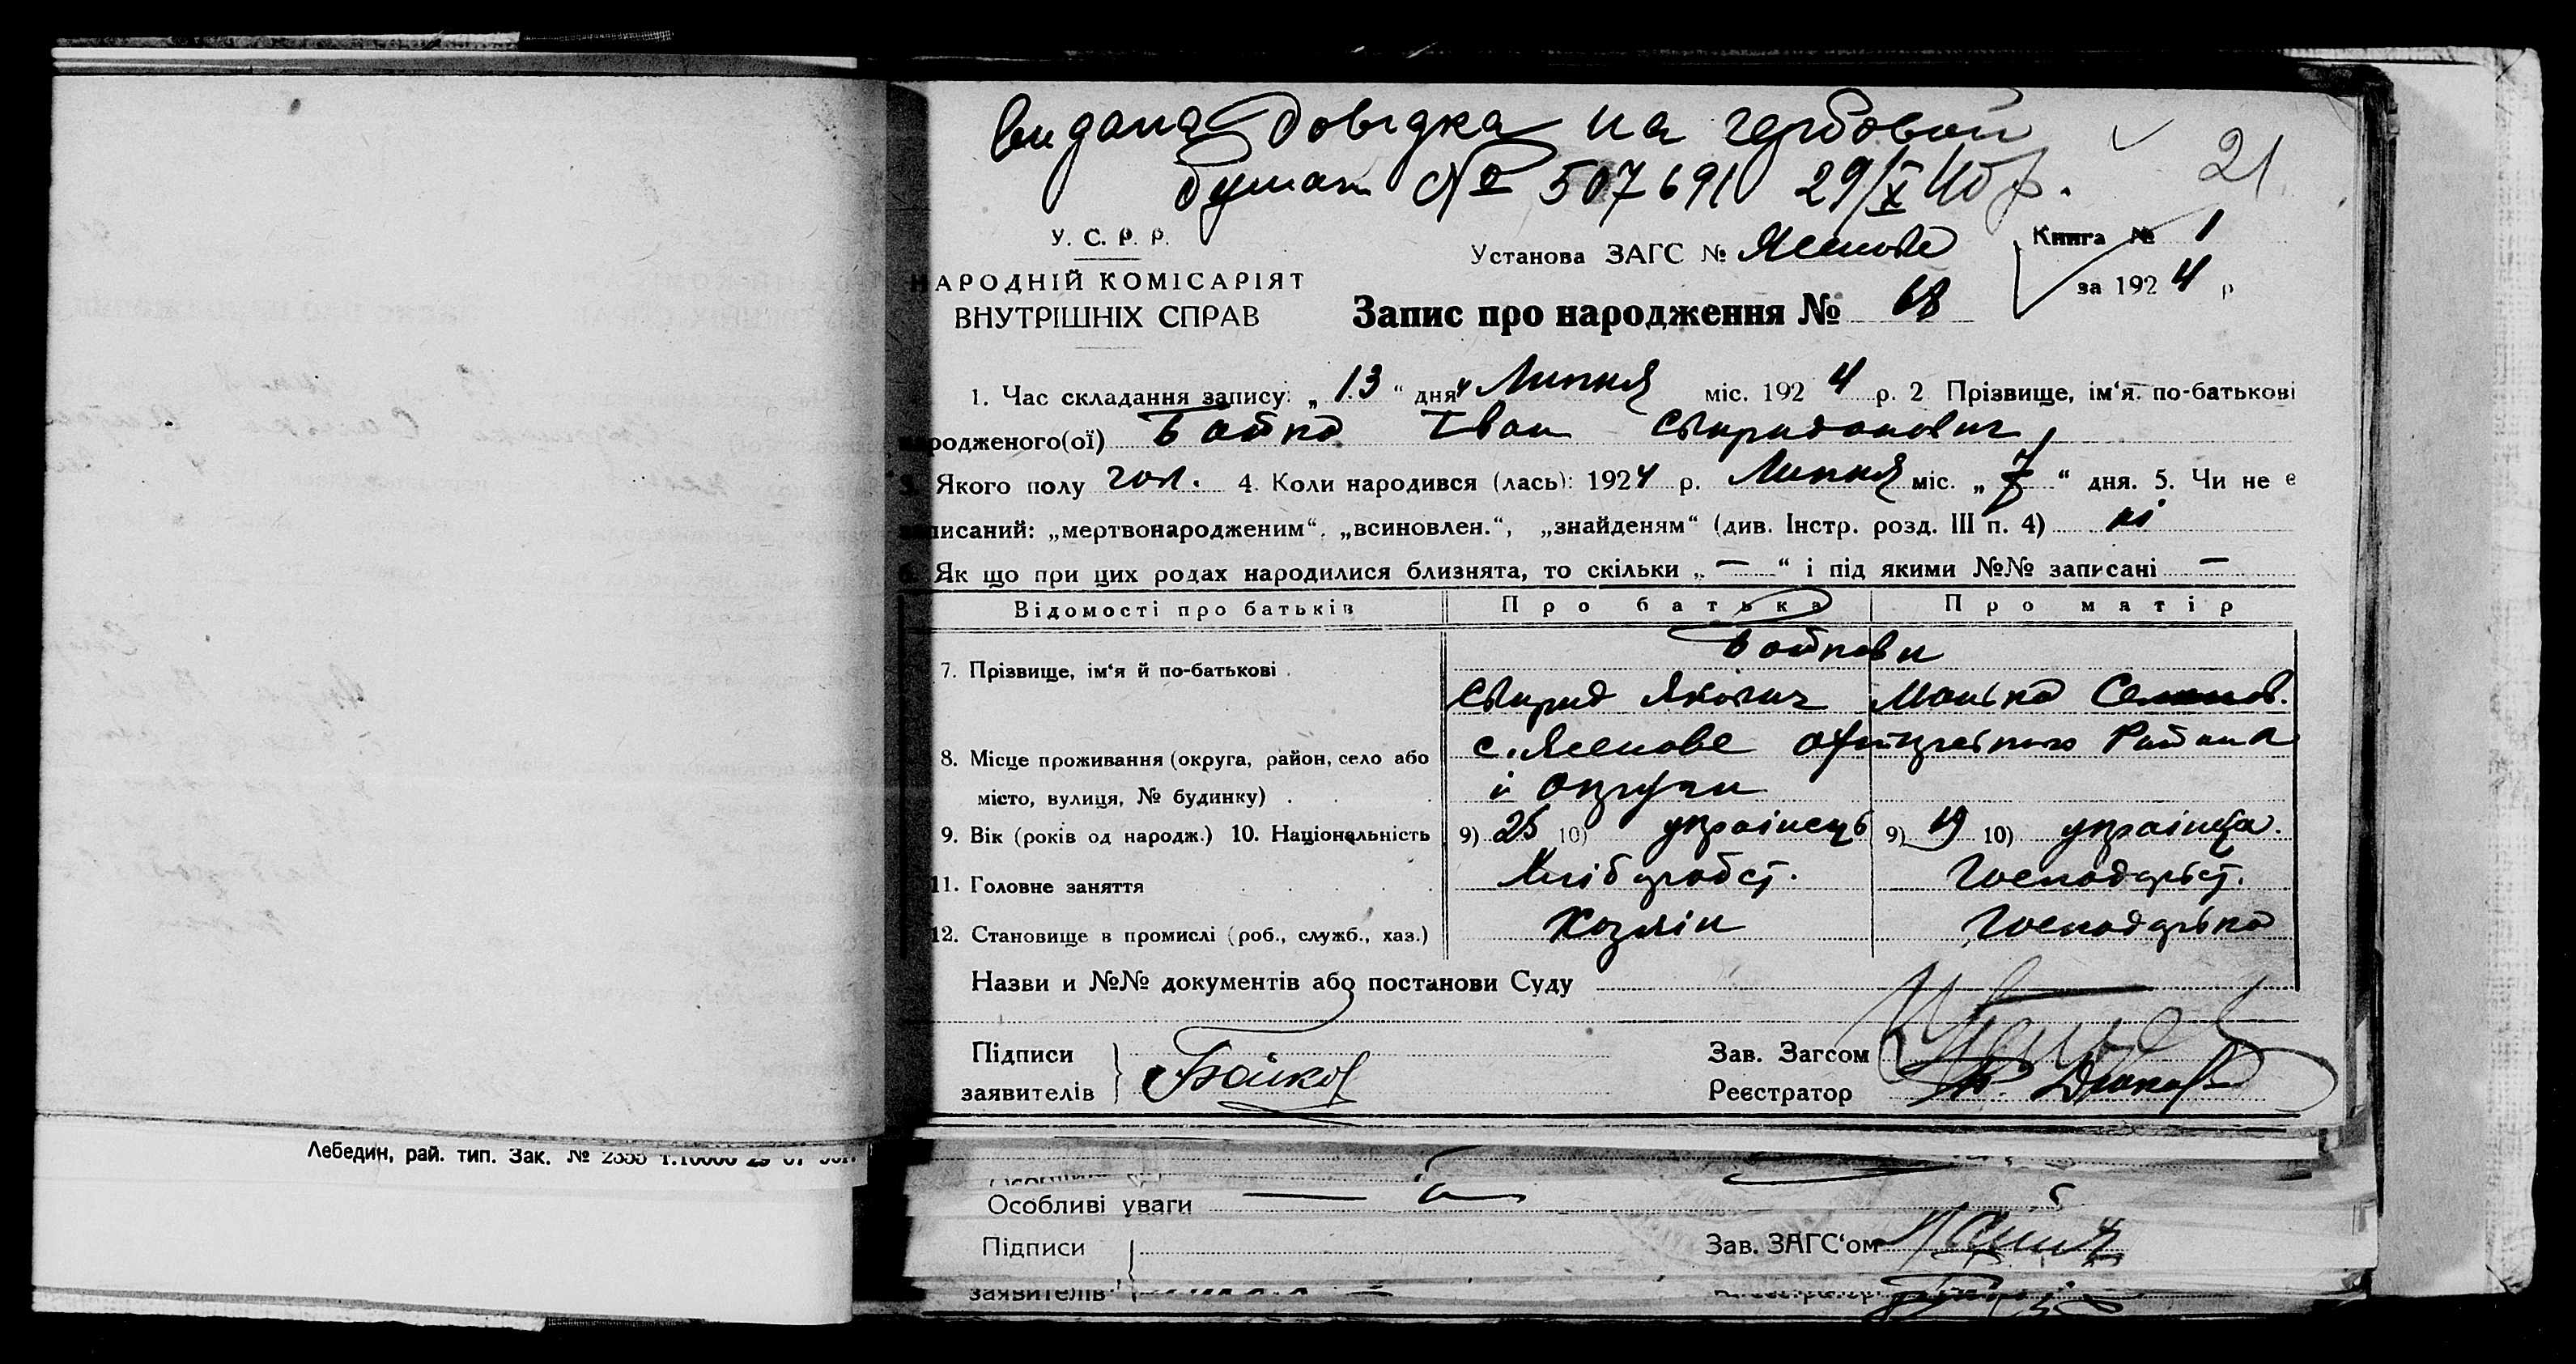 видана довідка на гербовой
бумаги № 507691 29/X 40 р.
21
У. С. Р. Р.
НАРОДНІЙ КОМІСАРІЯТ
ВНУТРІШНІХ СПРАВ
Установа ЗАГС № Ясенове
Книга № 1
за 1924 р
Запис про народження № 68
1. Час складання запису: „ 13 “ дня Липня міс. 1924 р. 2 Прізвище, ім‘я. по-батькові
народженого(ої) Бойко Іван Свиридонович
3. Якого полу чол. 4. Коли народився (лась): 1924 р. Липня міс. „ 7 “ дня. 5. Чи не є
записаний: „мертвонародженим“. „всиновлен.“, „знайденям“ (див. Інстр. розд. III п. 4) ні
6. Як що при цих родах народилися близнята, то скільки „ — “ і під якими №№ записані —
Відомості про батьків Про батька Про матір
7. Прізвище, ім‘я й по-батькові .
Бойкови
Свирид Якович Манька Семенов.
8. Місце проживання (округа, район, село або
місто, вулиця, № будинку) .
с. Ясенове Району
і округи
9. Вік (років од народж.) 10. Національність 9) 25 10) українець 9) 19 10) українка.
11. Головне заняття Хліборобст. Господарст.
12. Становище в промислі (роб., служб., хаз.) Хозяін Господарька
Назви и №№ документів або постанови Суду
Підписи
заявителів
Бойко
Зав. Загсом
Реєстратор
Лебедин, рай. тип. Зак. №
Особливі уваги
Підписи
Зав. ЗАГС‘ом
заявителів